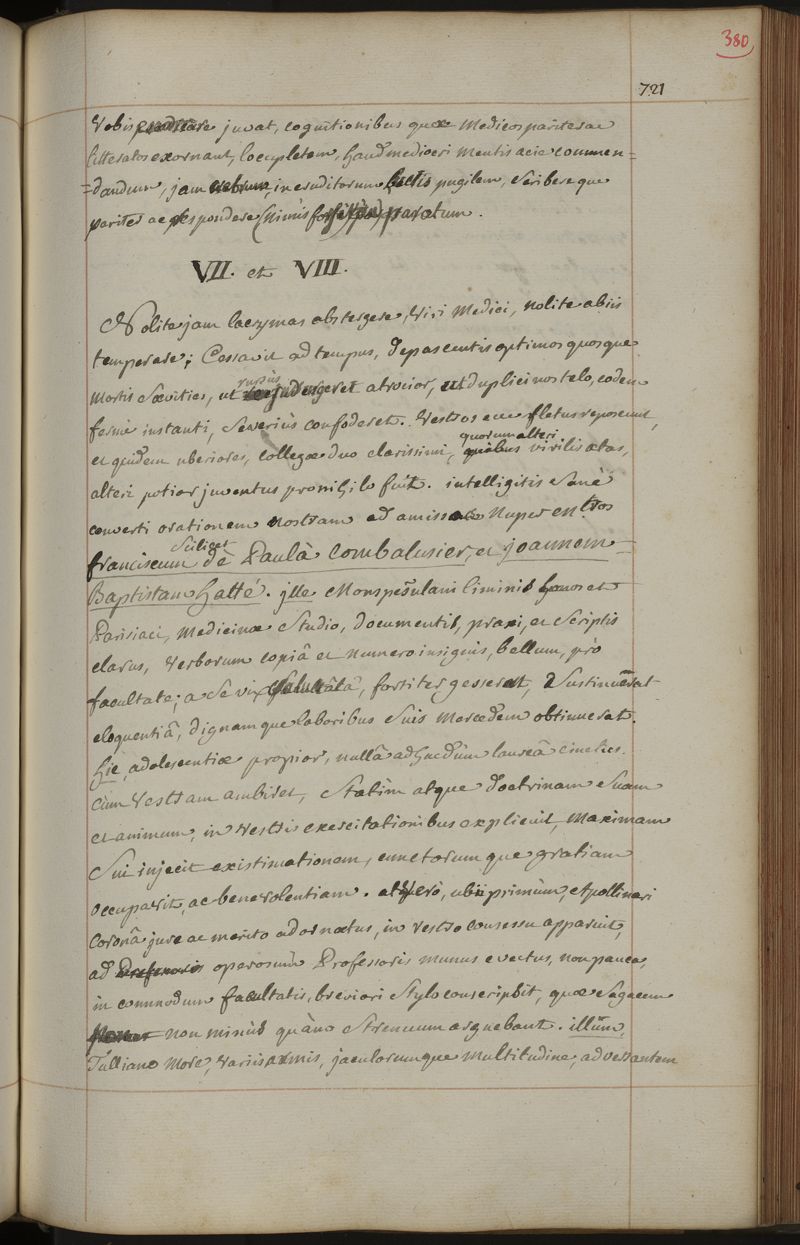 380
721
Vobis juvat, cognitionibus quæ Medicos pariter ac
litteratos exornant, locupletem, haud mediocri mentis acie commen=
=dandum, jam in eruditorum pugilem, scribere que
pariter ac respondere (nimis paratum.
VII. et VIII.
Nolite jam lacrymas abstergere, Viri Medici, nolite ab iis
temperare; Cessavit ad tempus, depascentis optimos quosque
Mortis Sævities, ut rursùs atrocior, ut duplici nos telo, eodem
fermè instanti, Severiùs confoderet. Vestros fletus reposcunt,
et quidem uberiores, collegæ duo clarissimi, quorum alteri virilis ætas,
alteri potior juventus pro nihilo fuit. intelligitis Sanè
converti orationem nostram ad amissos Nuper
franciscum Scilicet de Paulà Combalusier, et joannem
Baptistam Hatté. jlle Monspessulani liminis honos et
Parisiaci, Medicinæ Studio, documentis, praxi, et Scriptis
clarus, Verborum copiâ et numero insignis, bellum, prò
facultate, a Se vix Salutatâ, fortiter gesserat, Sustinuerat
eloquentiâ, dignamque laboribus Suis Mercedem obtinuerat.
hic, adolescentiæ propior, nullâ adhucdùm laureâ cinctus.
cùm Vestram ambiret, Statìm atque doctrinam Suam
et animum, in Vestris exercitationibus explicuit, Maximam
Sui injecit existimationem, cunctorumque gratiam
occupavit, ac benevolentiam. at Verò, ubi primùm, Apollinari
Coronâ jure ac merito adornatus, in Vestro Consessu apparuit,
ad operosum Professoris munus evectus, non pauca,
in commodum facultatis, breviori Stylo conscripsit, quæ Sagacem
non minùs quàm Strenuum arguebant. illum,
Tulliano More, Variis armis, jaculorumque Multitudine, adversantem